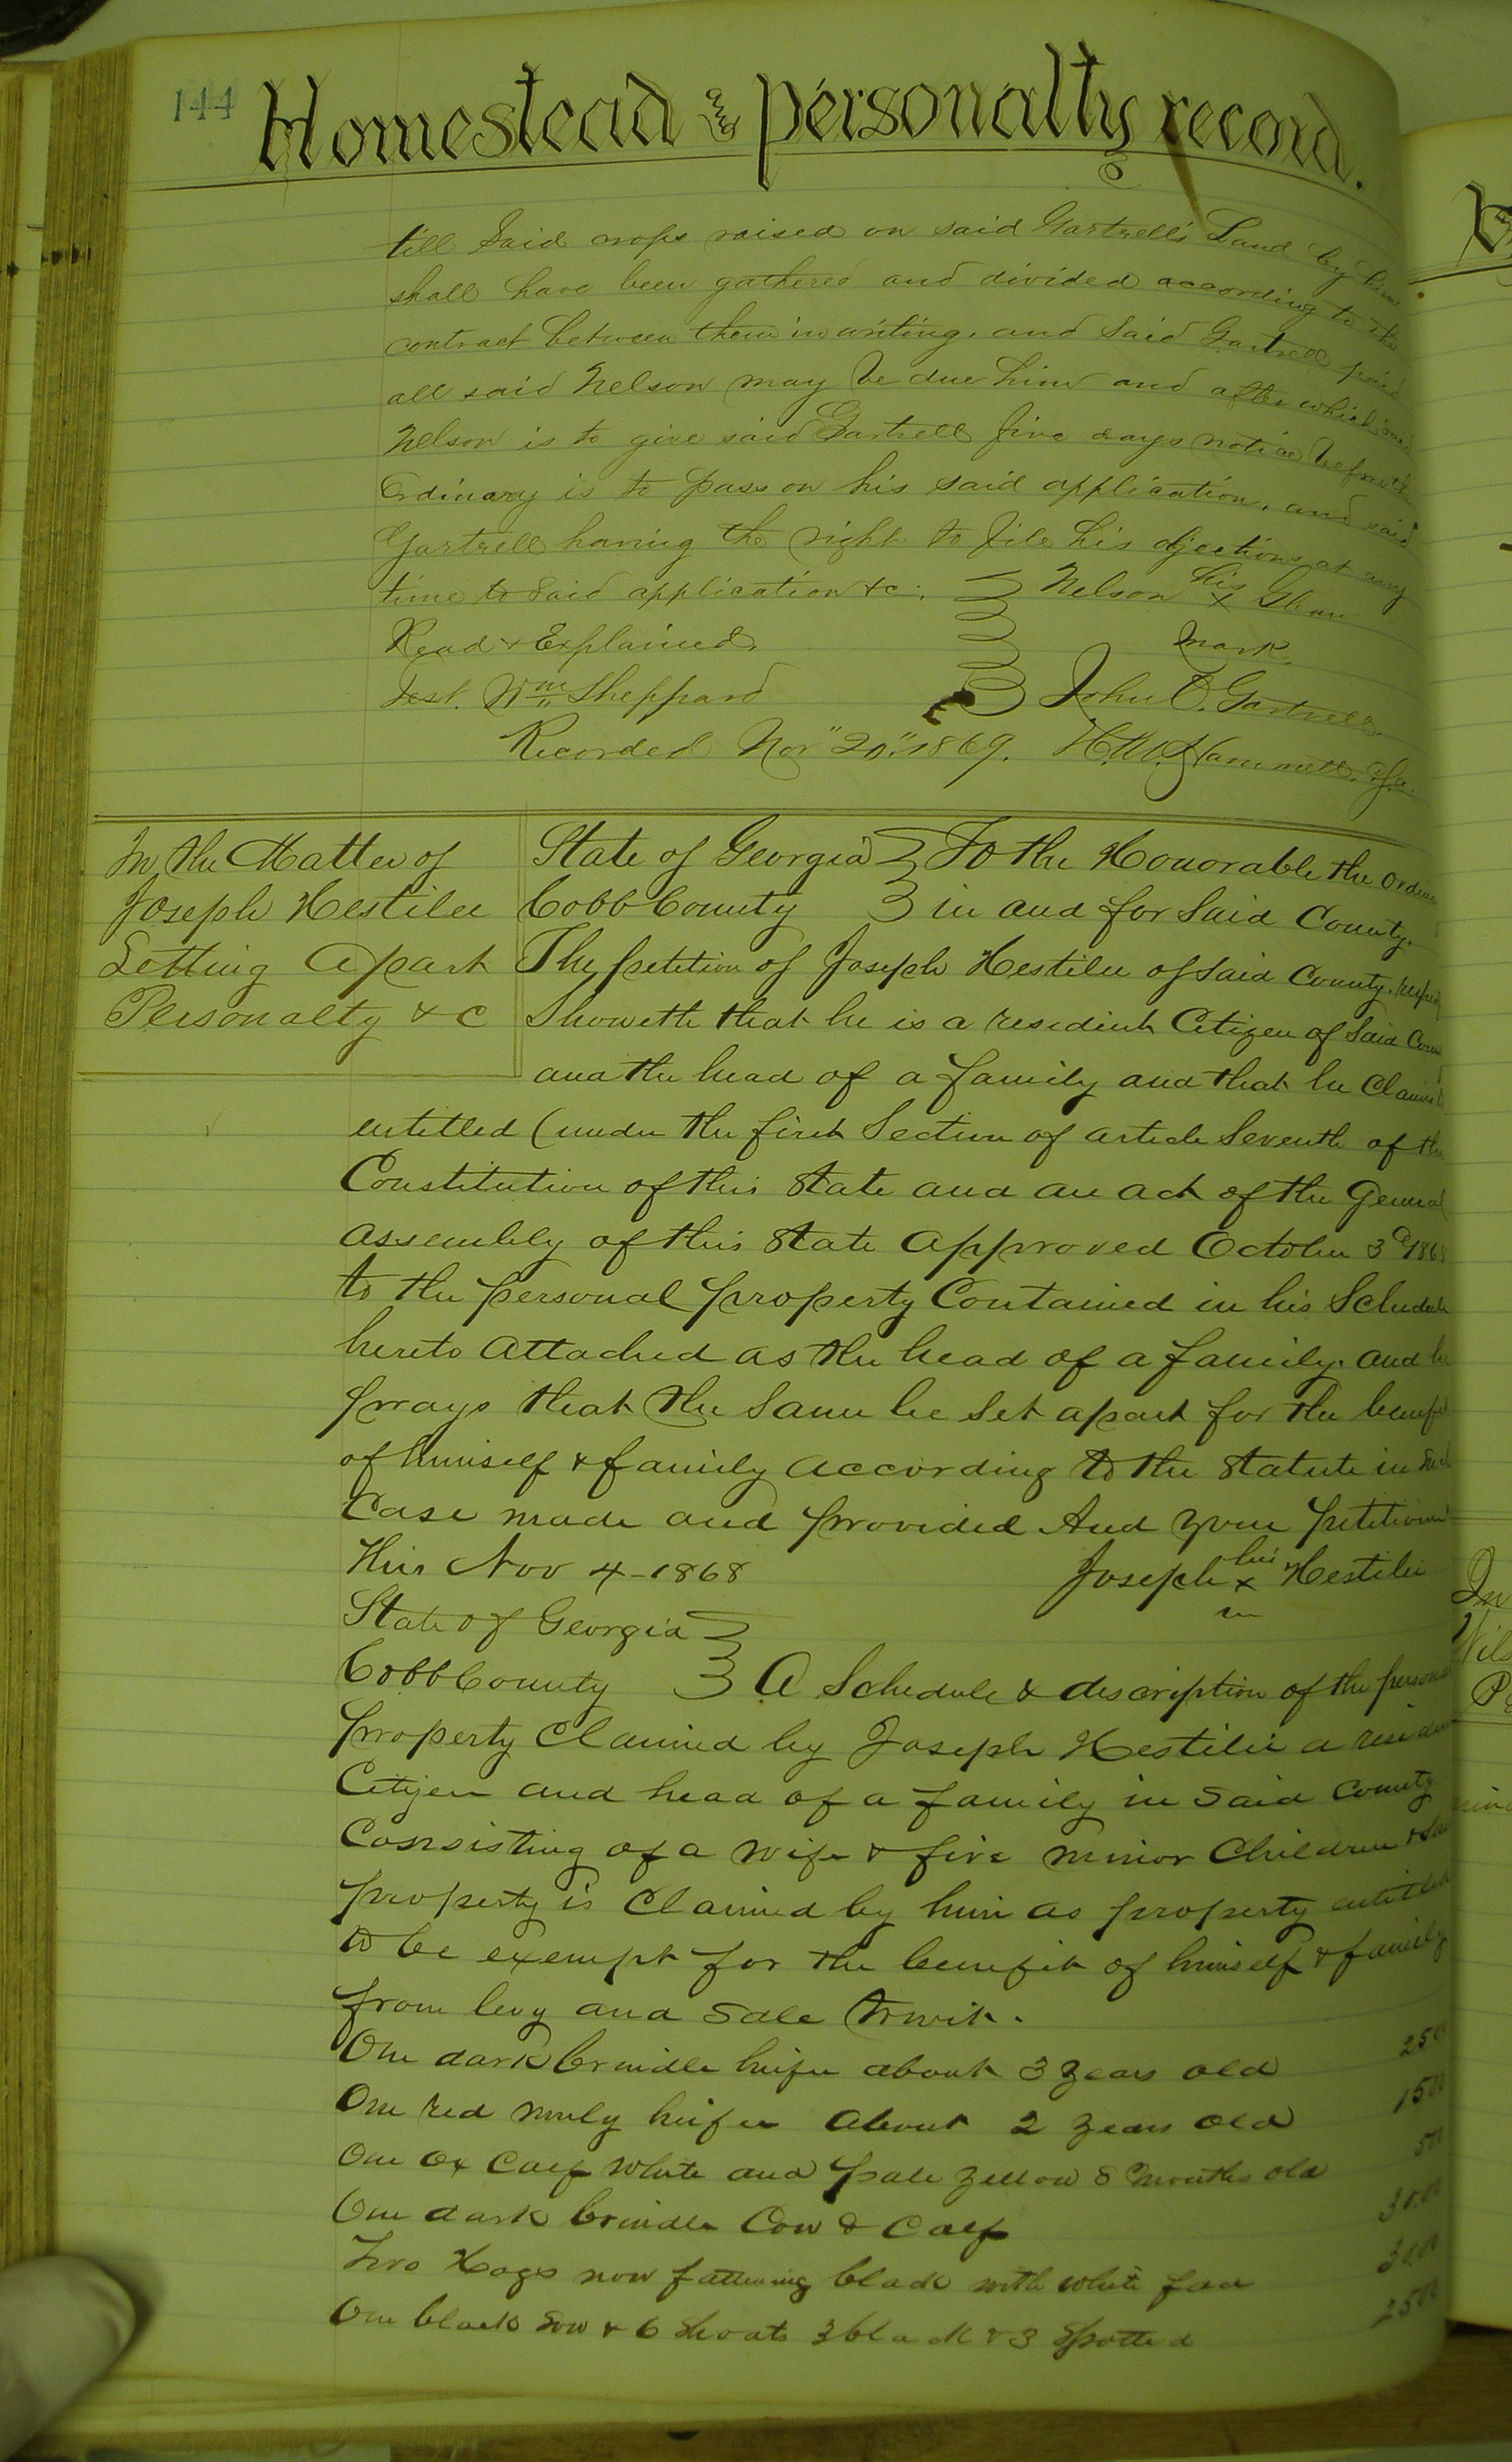 144 Homestead & personalty record.
till said crops raised on said Gartrell's Land by him
shall have been gathered and divided according to the
contract between them in writing, and said Gartrell paid
all said Nelson may be due him and after which said
Nelson is to give said Gartrell five days notice before the
Ordinary is to pass on his said application, and said
Gartrell having the right to file his objections at any
time to said application &c. Nelson his x
Read & Explained, mark.
Test. Wm Sheppard John O. Gartrell
Recorded Nov" 20" 1869. H.M. Hammett,
In the Matter of
Joseph Hestilee
Setting apart
Personalty & C
State of Georgia To the Honorable the Ordin
Cobb County in and for Said County.
The petition of Joseph Hestilee of Said County.
Showeth that he is a resident Citizen of Said Coun
and the head of a family and that he Claims
entitled (under the first Section of article Seventh of the
Constitution of this State and an act of the General
assembly of this State approved October 3d 1868
to the personal property Contained in his Schedule
hereto attached as the head of a family. and he
prays that the same be set apart for the benefit
of himself & family according to the Statute in such
Case made and provided And your petitioner
This Nov 4-1868 Joseph his x Hestilee
m
State of Georgia
Cobb County A Schedule & description of the persona
property Claimed by Joseph Hestilee a residen
Citizen and head of a family in said County
Consisting of a wife & five minor Children & Said
property is Claimed by him as property entitled
to be exempt for the benefit of himself & family
from levy and sale towit.
One dark brindle heifer about 3 years old 2500
One red muly heifer about 2 years old 1500
One ox calf white and pale yellow 8 months old 500
One dark brindle Cow & Calf 30.00
Two Hogs now fattening black with white face 30.00
One black sow & 6 shoats 3 black & 3 Spotted 2500